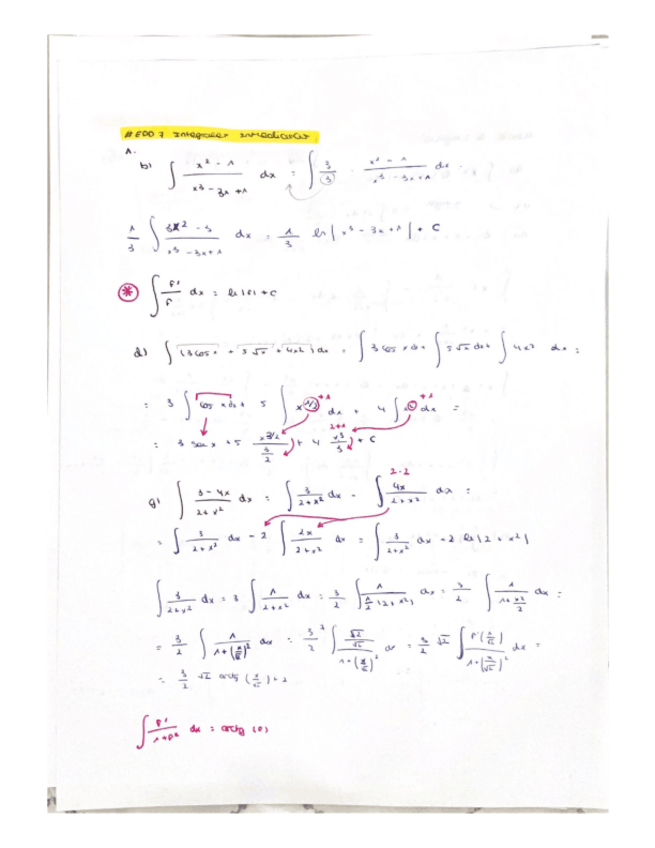 # EDO 7 Integrales Inmediatas
1.
b) ∫ (x² - 1)/(x³ - 3x + 1) dx = ∫ 3/3 · (x² - 1)/(x³ - 3x + 1) dx =
1/3 ∫ (3x² - 3)/(x³ - 3x + 1) dx = 1/3 ln |x³ - 3x + 1| + C
* ∫ f'/f dx = ln |f| + C
d) ∫ (3 cos x + 5√x + 4x²) dx = ∫ 3 cos x dx + ∫ 5√x dx + ∫ 4x² dx =
+1 +1
= 3 ∫ cos x dx + 5 ∫ x^(1/2) dx + 4 ∫ x² dx =
2+1
= 3 sen x + 5 x^(3/2)/(3/2) + 4 x³/3 + C
2·2
g) ∫ (3 - 4x)/(2 + x²) dx = ∫ 3/(2 + x²) dx - ∫ 4x/(2 + x²) dx =
= ∫ 3/(2 + x²) dx - 2 ∫ 2x/(2 + x²) dx = ∫ 3/(2 + x²) dx - 2 ln |2 + x²|
∫ 3/(2 + x²) dx = 3 ∫ 1/(2 + x²) dx = 3/2 ∫ 1/(1/2 (2 + x²)) dx = 3/2 ∫ 1/(1 + x²/2) dx =
= 3/2 ∫ 1/(1 + (x/√2)²) dx = 3/2 ∫ (√2/√2)/(1 + (x/√2)²) dx = 3/2 √2 ∫ f'(x/√2)/(1 + (x/√2)²) dx =
= 3/2 √2 arctg (x/√2) +
∫ f'/(1 + f²) dx = arctg (f)